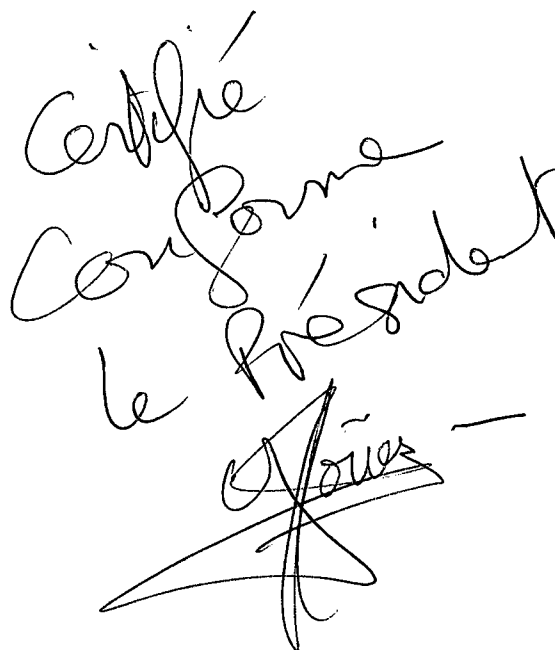 Certifié
Conforme
le Président